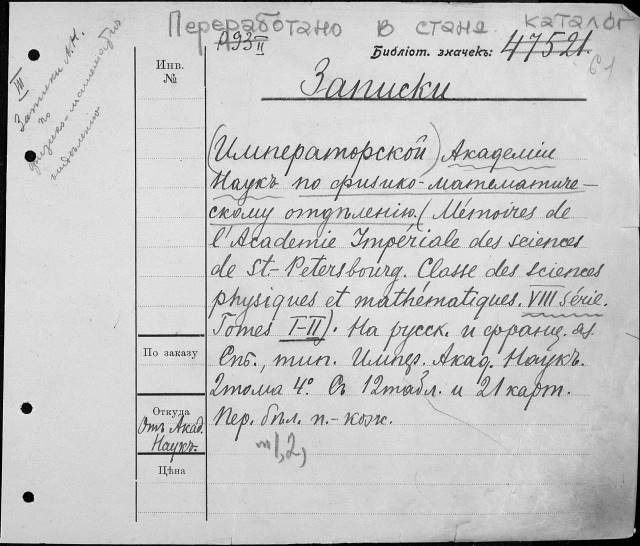 Переработано в стана каталог
Р93II
Библіот. значекъ: 47521.
61
III
Записки А.Н.
по
физико-математич
отдѣленію
Инв.
№
Записки
(Императорской) Академіи
Наукъ по физико-математиче-
скому отдѣленію. (Mémoires de
l'Académie Impériale des sciences
de St-Petersbourg. Classe des sciences
physiques et mathématiques. VIII série.
Tomes I-II). На русск. и франц. яз.
По заказу
Спб., тип. Импер. Акад. Наукъ.
2 тома 4°. Съ 12 табл. и 21 карт.
Откуда
Отъ Акад.
Наукъ.
Пер. бѣл. п.-кож.
т 1, 2,
Цѣна